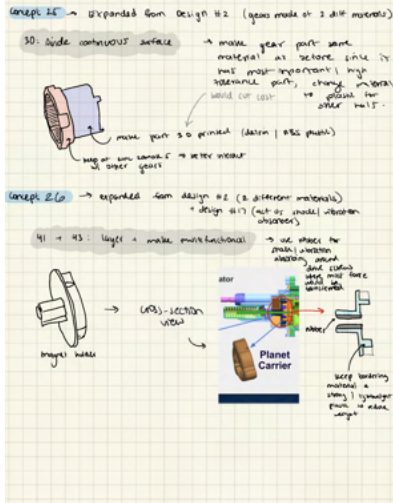 Concept 25 → Expanded from Design #2 (gears made of 2 diff materials)
30: Divide continuous surface → make gear part same
material as before since it
has most important / high
tolerance part, change material
would cut cost to plastic for
other half.
make part 3D printed (delrin / ABS plastic)
keep at → better interact
w/ other gears
Concept 26 → expanded from design #2 (2 different materials)
+ design #17 (act as shock / vibration
absorber)
41 + 43: layer + make multifunctional → use rubber for
shock / vibration
absorbing around
where most force
would be
→ cross-section
view
ator
Planet
Carrier
rubber
keep bordering
material a
strong / lightweight
plastic to reduce
weight